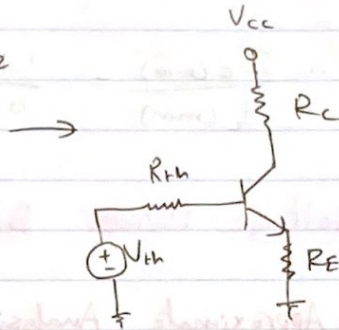 Vcc
Rc
Rth
Vth
RE